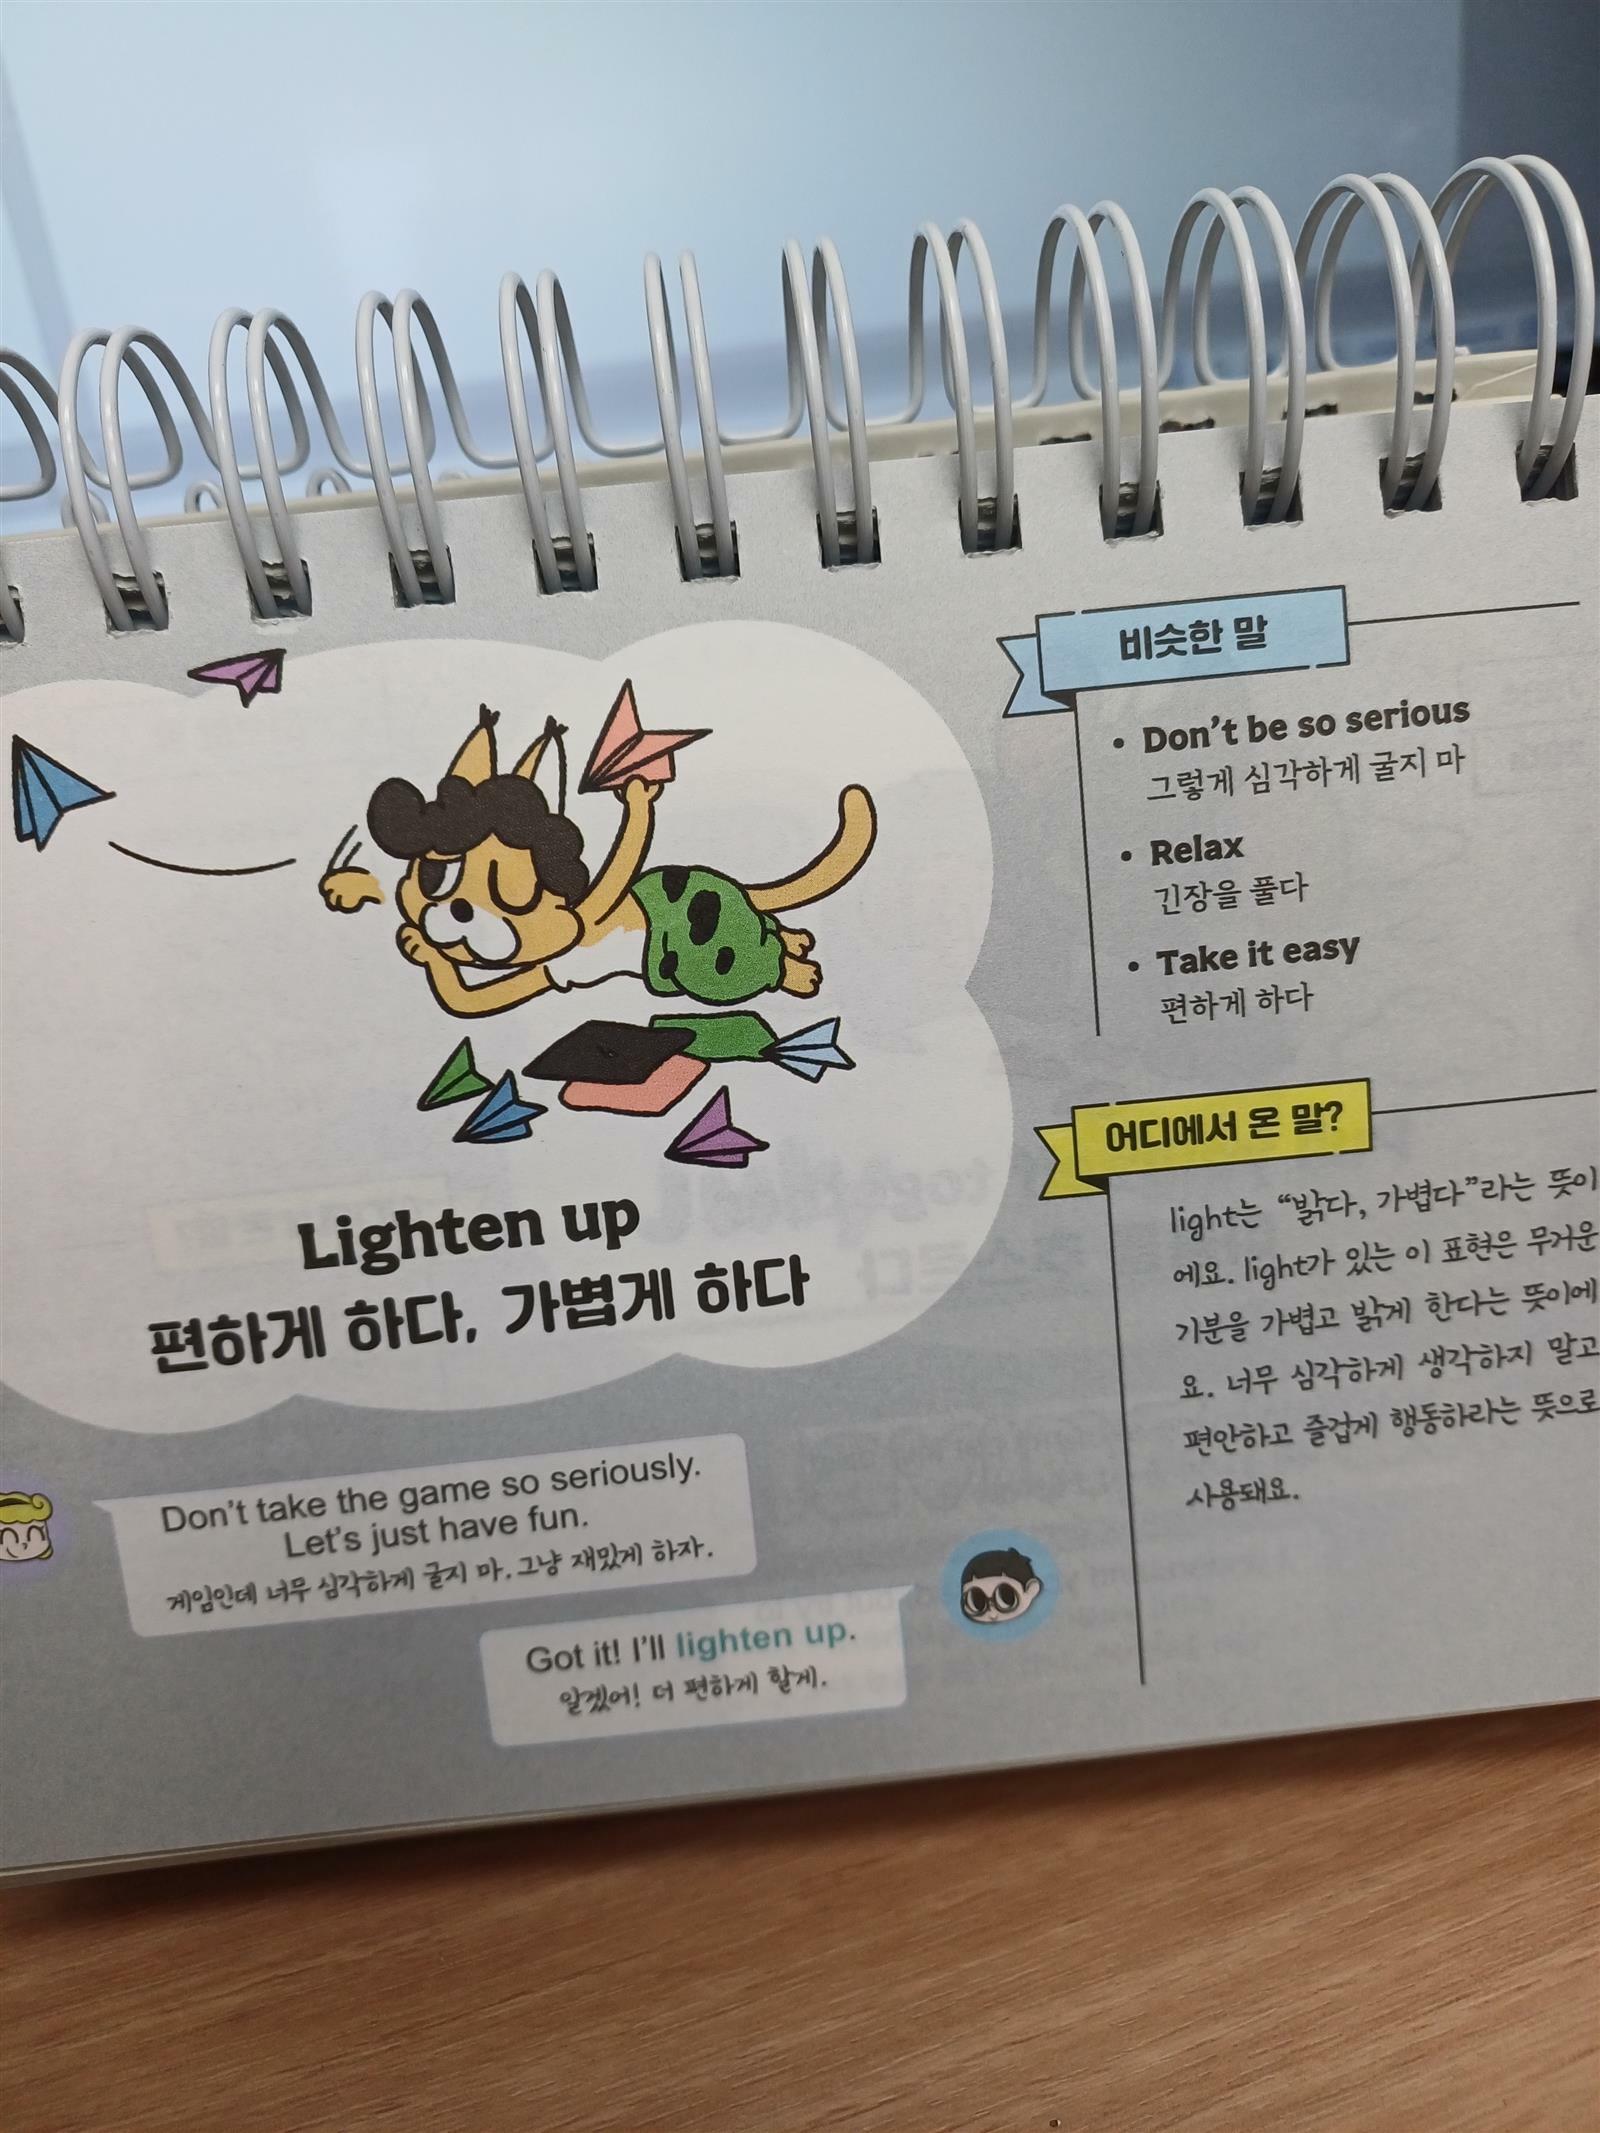 Lighten up
편하게 하다, 가볍게 하다
Don't take the game so seriously.
Let's just have fun.
게임인데 너무 심각하게 굴지 마. 그냥 재밌게 하자.
Got it! I'll lighten up.
알겠어! 더 편하게 할게.
비슷한 말
• Don't be so serious
그렇게 심각하게 굴지 마
• Relax
긴장을 풀다
• Take it easy
편하게 하다
어디에서 온 말?
light는 “밝다, 가볍다”라는 뜻이
에요. light가 있는 이 표현은 무거운
기분을 가볍고 밝게 한다는 뜻이에
요. 너무 심각하게 생각하지 말고
편안하고 즐겁게 행동하라는 뜻으로
사용돼요.